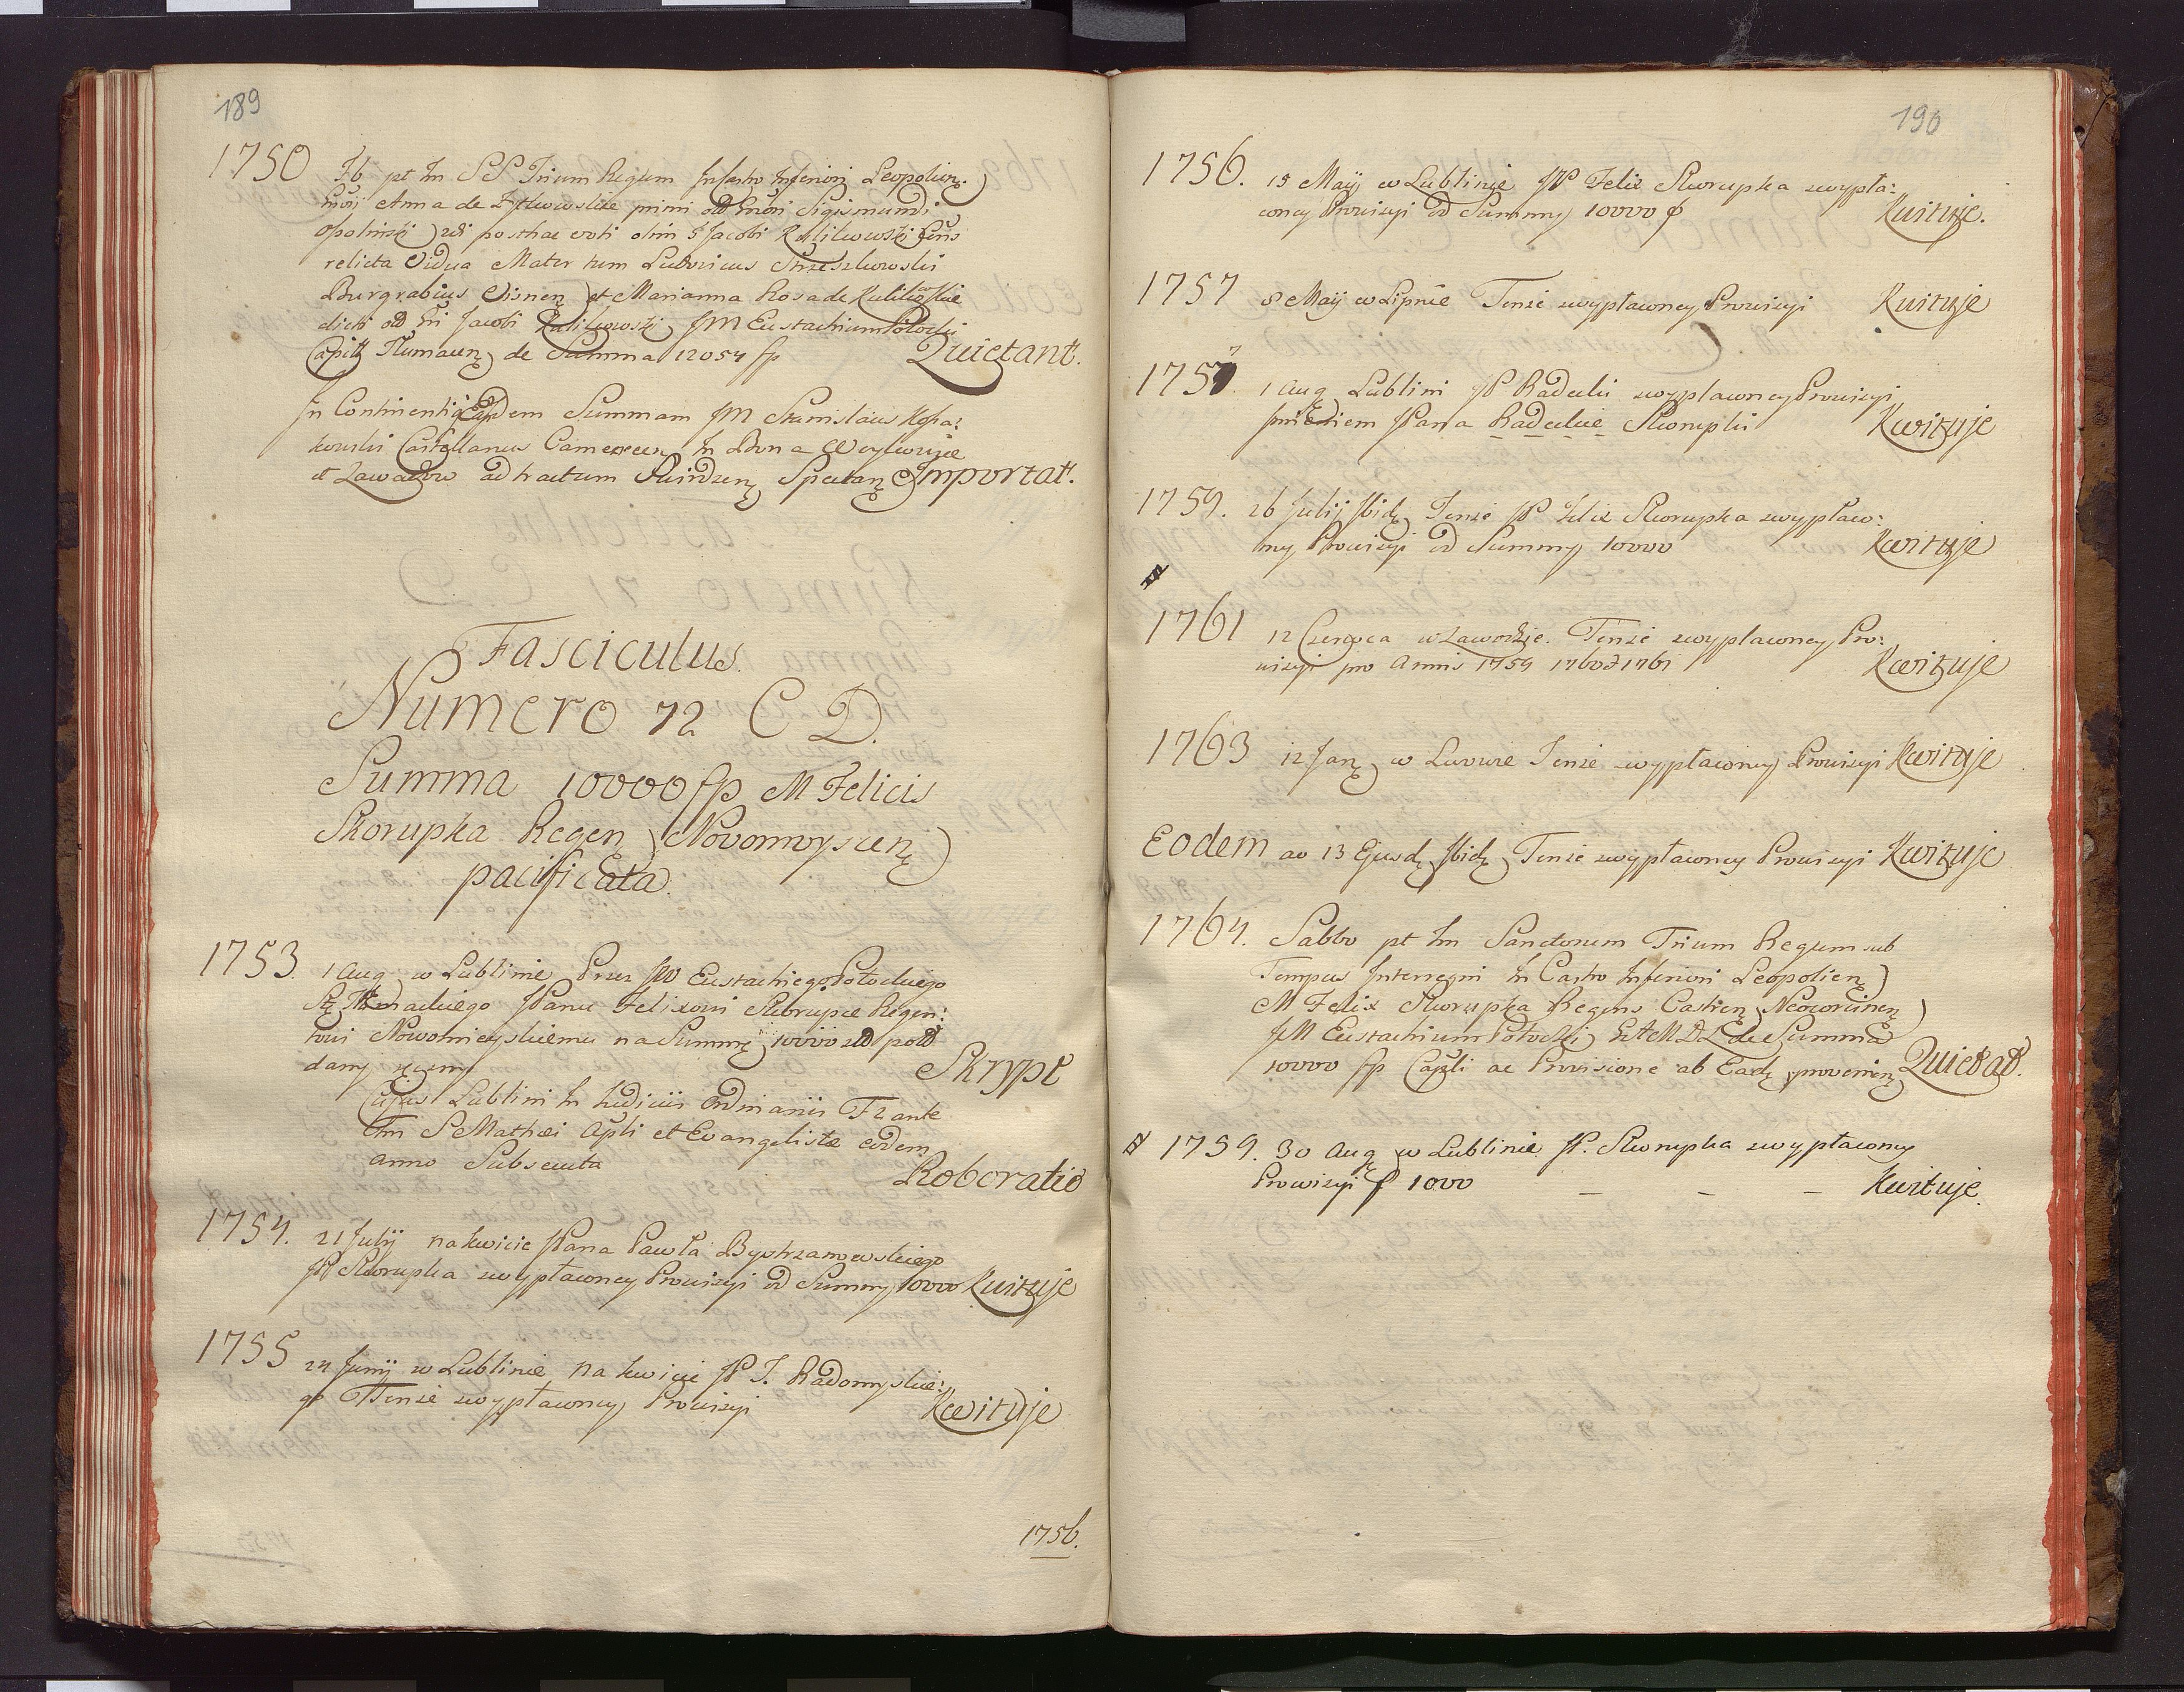 189
1750 Fb pt in SS Trium Regum in Castro Inferiori Leopolien
Anna de primi Sigismundi
Opolinski posthac voti olim Jacobi Kulikowski
relicta Vidua Mater tum Ludovicus Strzeszkowski
Burgrabius Visnen et Marianna Rosa de Kulikowskie
dicti Jacobi Kulikowski JM Eustachium Potocki
Capit Tlumacen de Summa 12054 fp Quietant.
In Continenti Eandem Summam JM Stanislaus Kossa:
kowski Castellanus Camenecen in Bona
et Zawadow ad tractum Spectan Importat.
Fasciculus
Numero 72 C D.
Summa 10000 fp M Felicis
Skorupka Regen Novomiyscen
pacificata
1753. 1 Aug w Lublinie Przez JW Eustachiego Potockiego
Stę Tłmackiego JPanu Felixowi Skorupce Regen:
towi Nowomieyskiemu na Summę 10000 pod
dany ręczny Skrypt
Cujus Lublini in Judiciis Ordinariis Fr ante
fm S Mathæi Apli et Evangelistæ eodem
anno Subsecuta Roboratio
1754. 21 Julij na kwicie JPana Pawła Bystrzanowskiego
JP Skorupka wypłaconey Prowizyi od Summy 10000 Kwituje
1755 24 Junij w Lublinie na kwicie JP J. Radomyskie:
go Tenże wypłaconey Prowizyi Kwituje
1756.
190
1756. 15 Maij w Lublinie JP Felix Skorupka wypła:
coney Prowizyi od Summy 10000 Kwituje.
1757 8 Maij w Lipnie Tenże wypłaconey Prowizyi Kwituje
1757. 1 Aug Lublini JP Radecki wyplaconey Prowizyi
imieniem JPana Radeckie Skorupki Kwituje
1759. 26 Julij Ibid Tenże JP Felix Skorupka wypłaco:
ney Prowizyi od Summy 10000 Kwituje
#
1761 12 Czerwca w Zawodzie. Tenże wyplaconey Pro:
wizyi pro Annis 1759 1760 et 1761 Kwituje
1763 12 Jan w Lwowie Tenże wypłaconey Prowizyi Kwituje
Eodem ao 13 Ejusd Ibid Tenże wypłaconey Prowizyi Kwituje
1764. Sabbo pt fm Sanctorum Trium Regum sub
Tempus Interregni in Castro Inferiori Leopolien
M Felix Skorupka Regens Castren Neocorcinen
JM Eustachium Potocki GAMDL de Summa
10000 fp Capli ac Provisione ab Ead provenien Quietat.
# 1759. 30 Aug w Lublinie JP. Skorupka wypłaconey
Prowizyi f 1000 – – – Kwituje.